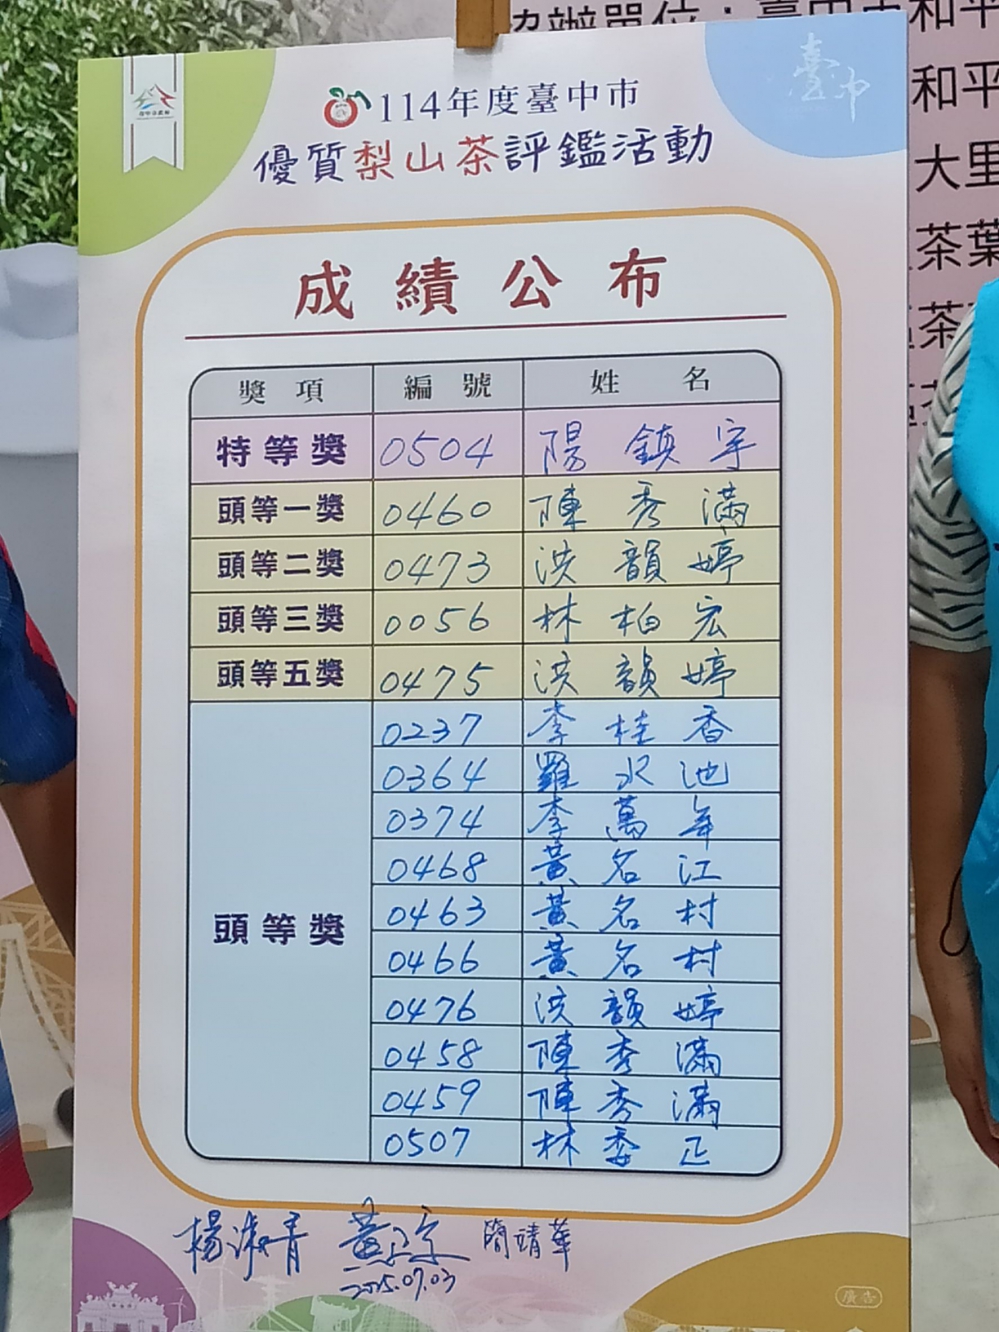 協辦單位：臺中市和平
和平
大里
茶葉
茶
臺中
114年度臺中市
優質梨山茶評鑑活動
成績公布
獎項 編號 姓名
特等獎 0504 陽鎮宇
頭等一獎 0460 陳秀滿
頭等二獎 0473 洪韻婷
頭等三獎 0056 林柏宏
頭等五獎 0475 洪韻婷
頭等獎
0237 李桂香
0364 羅水池
0374 李萬年
0468 黃名江
0463 黃名村
0466 黃名村
0476 洪韻婷
0458 陳秀滿
0459 陳秀滿
0507 林委正
楊淑青 簡靖華
2025.07.03
廣告